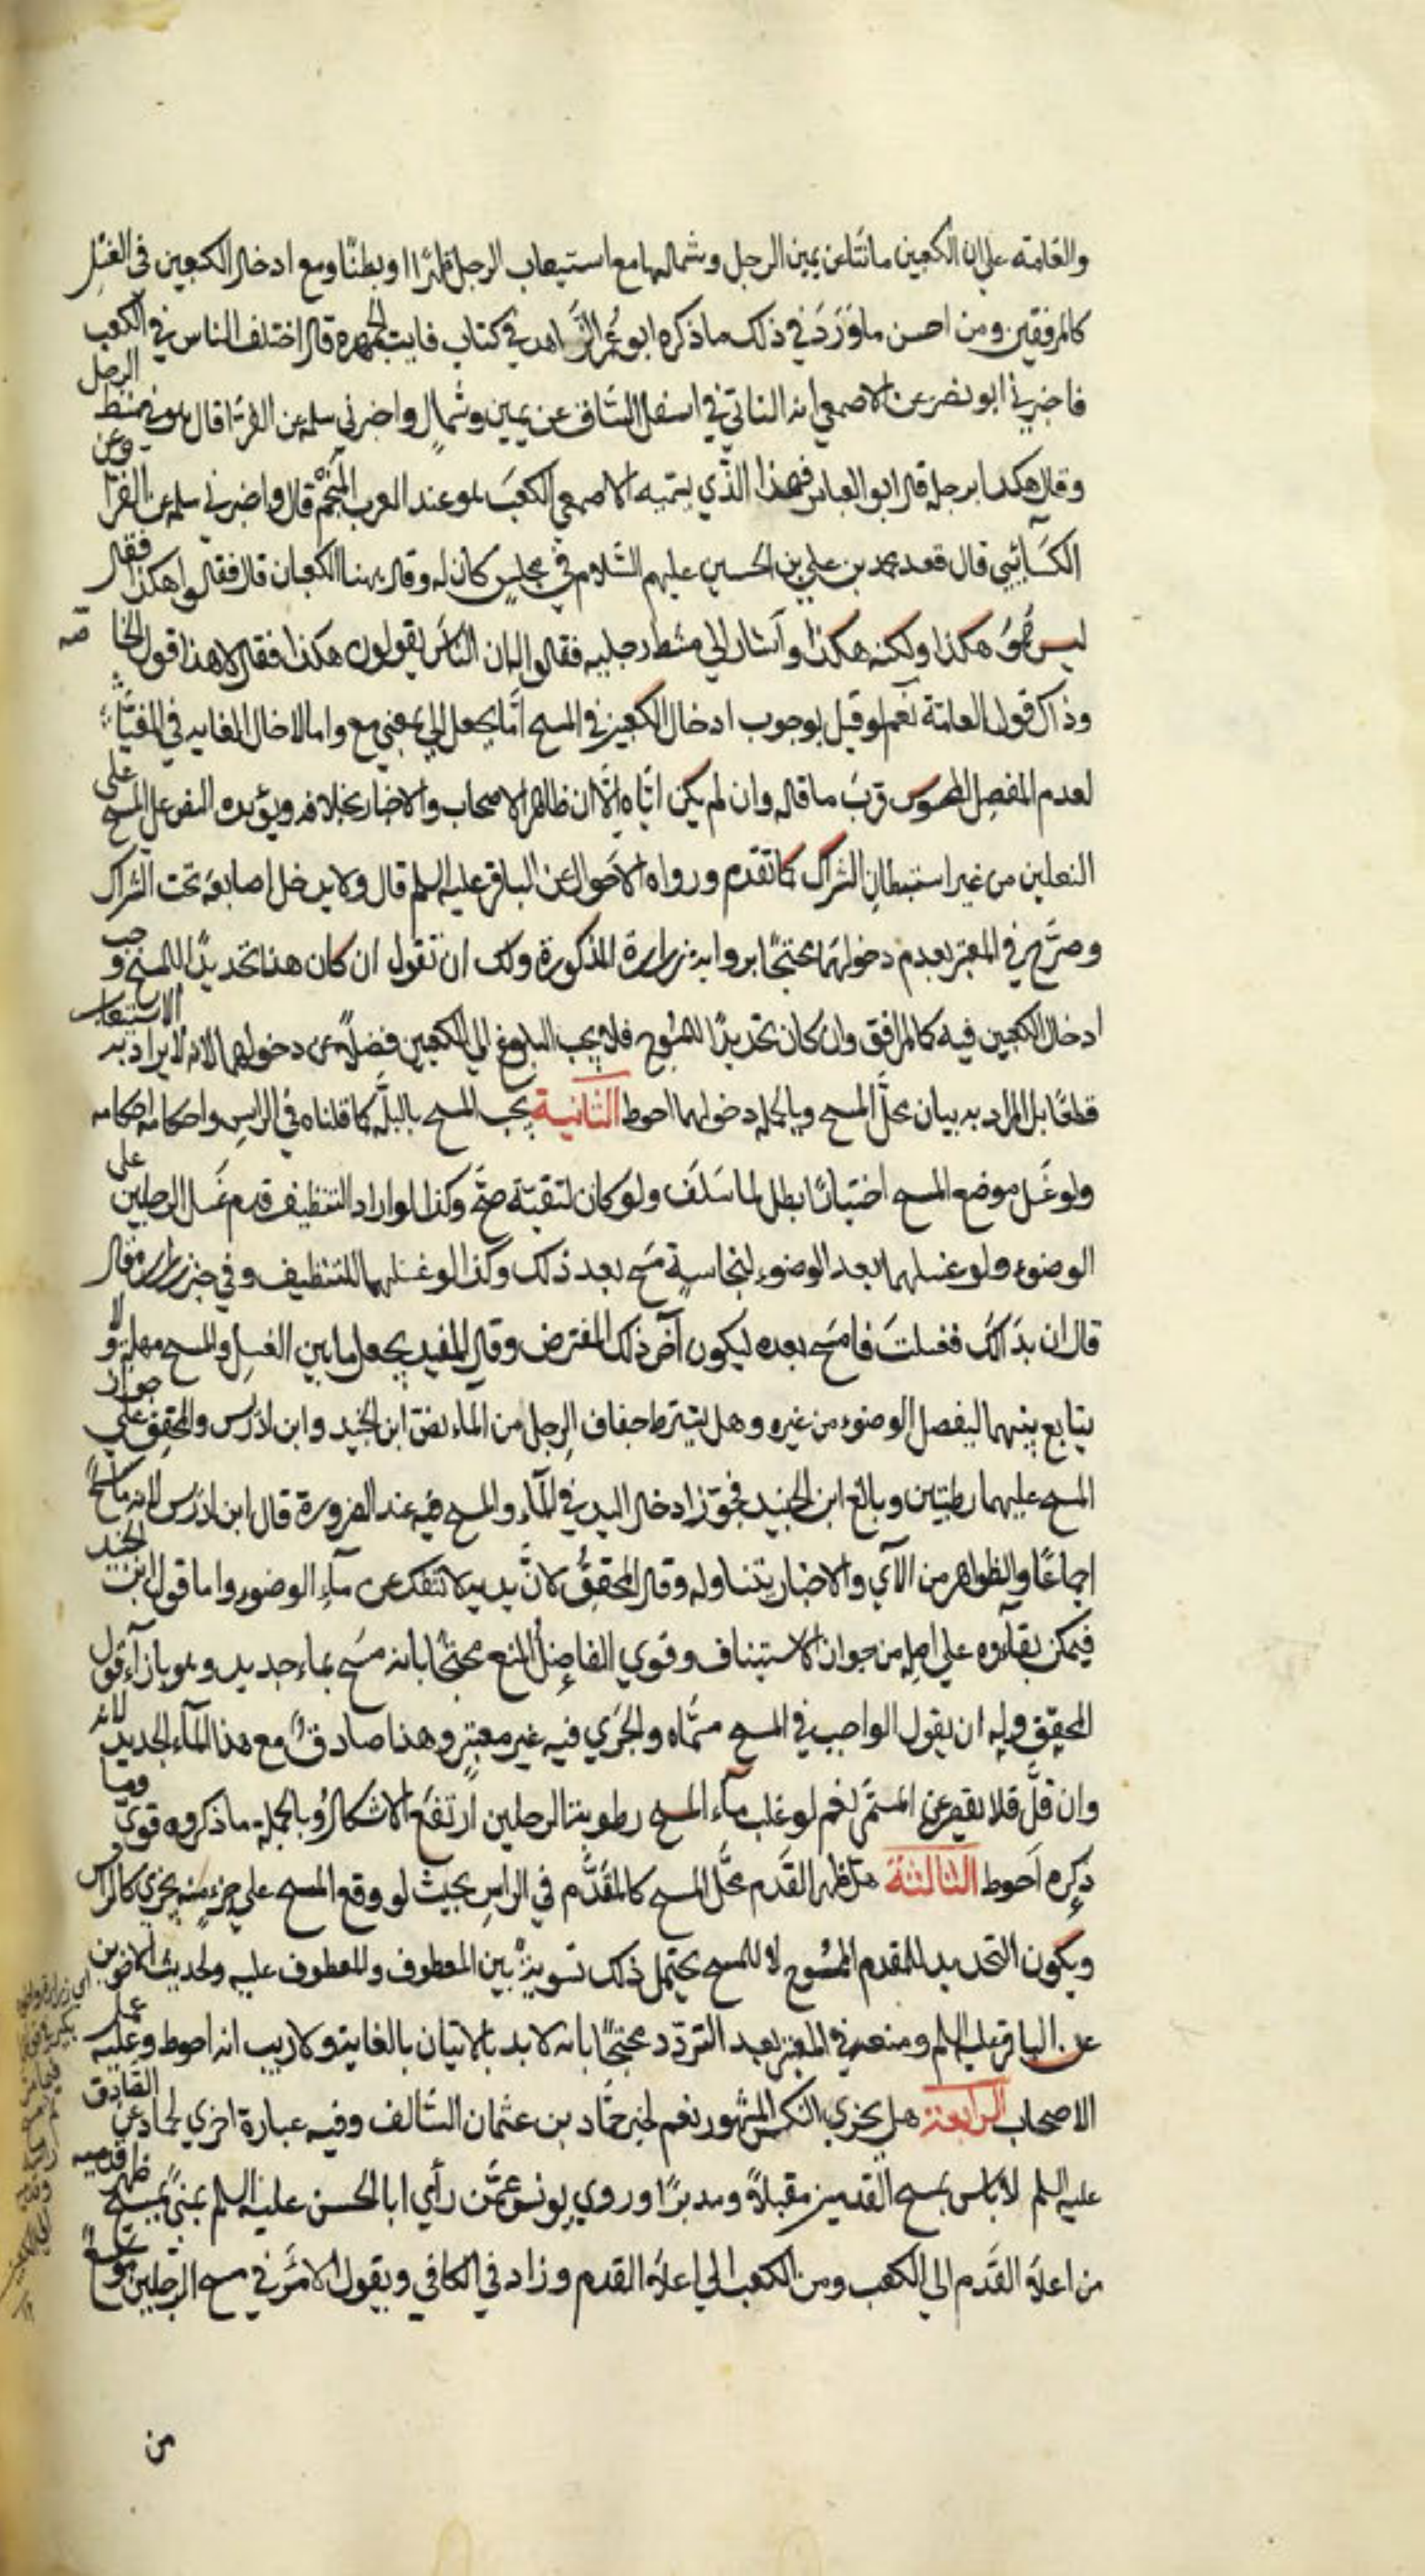 والعامة علي ان الكعبين ما نتا عن يمين الرجل وشمالها مع استيعاب الرجل ظهرًا وبطنًا ومع ادخال الكعبين في الغسل
كالمرفقين ومن احسن ما ورد في ذلك ما ذكره ابو عمر الزاهد في كتاب فايت الجمهره قال اختلف الناس في الكعب
فاخبرني ابو نصر عن الاصمعي انه الناتي في اسفل الساق عن يمين وشمال واخبرني سلمه عن الفرّا قال هو في مشط الرجل
وقال هكذا برجله قال ابو العباس فهذا الذّي يسميه الاصمعي الكعب هو عند العرب المنجم قال واخبرني سلمه عن الفرّا وعن
الكسائي قال قعد محمد بن علي بن الحسين عليهم السّلام في مجلس كان له وقال ههنا الكعبان قال فقالوا هكذا فقال
ليس هُوَ هكذا ولكنه هكذا وأشار الي مشط رجليه فقالوا له ان النّاس يقولون هكذا فقال لا هذا قول الخاصه
وذاك قول العامّة نعم لو قيل بوجوب ادخال الكعبين في المسح امّا بجعل الي بمعني مع واما لادخال الغايه في المغيّا
لعدم المفصل المحسوس قرب ما قاله وان لم يكن ايّاه الّا ان ظاهر الاصحاب والاخبار بخلافه ويؤيده النص علي المسح علي
النعلين من غير استبطان الشراك كما تقدّم ورواه الاحول عن الباقر عليه السلم قال ولا يدخل اصابعه تحت الشراك
وصرّح في المعتبر بعدم دخولهما محتجًا برواية زرارة المذكورة ولك ان تقول ان كان هذا تحديدًا للمسح وجب
ادخال الكعبين فيه كالمرافق وان كان تحديدًا للممسوح فلا يجب البلوغ الي الكعبين فضلًا عن دخولهما لانه لا يراد به الاستيعاب
قطعًا بل المراد به بيان محلّ المسح وبالجمله دخولهما احوط الثانية يجب المسح بالبلّه كما قلناه في الراس واحكامه احكامه
ولو غسل موضع المسح اختيارًا بطل لما سلف ولو كان لتقيّة صحّ وكذا لو اراد التنظيف قدم غسل الرجلين علي
الوضوء ولو غسلهما بعد الوضوء لنجاسةٍ مسح بعد ذلك وكذا لو غسلهما للتنظيف وفي خبر زراره قال
قال ان بدا لك فغسلت فامسح بعده ليكون آخر ذلك المفترض وقال المفيد يجعل ما بين الغسل والمسح مهلة ولا
يتابع بينهما ليفصل الوضوء من غيره وهل يشترط جفاف الرجل من الماء نصّ ابن الجنيد وابن ادريس والمحقق علي جواز
المسح عليهما رطبتين وبالغ ابن الجنيد فجوّز ادخال اليد في الماء والمسح فيه عند الضرورة قال ابن ادريس لانه ماسح
اجماعًا والظواهر من الآي والاخبار يتناوله وقال المحقق لانّ يديه لا تنفك عن مآء الوضوء واما قول ابن الجنيد
فيمكن بقآؤه علي اصله من جواز الاستيناف وقوي الفاضل المنع محتجًا بانه مسح بماء جديد وهو بازآء قول
المحقق وله ان يقول الواجب في المسح مسمّاه والجري فيه غير معتبر وهذا صادق مع هذا المآء الجديد لانه
وان قلّ فلا يقصر عن المسمّي نعم لو غلب مآء المسح رطوبة الرجلين ارتفع الاشكال وبالجملة ما ذكروه قوي وما
ذكره احوط الثالثة هل ظهر القدم محلّ المسح كالمقدَّم في الراس بحيث لو وقع المسح علي جزء منه يجزي كالراس
ويكون التحديد للقدم الممسوح لا للمسح يحتمل ذلك تسوية بين المعطوف والمعطوف عليه ولحديث الاخوين
عن الباقر عليه السلم ومنعه في المعتبر بعد التردّد محتجًا بانه لا بد بالاتيان بالغاية ولا ريب انه احوط وعليه عمل
الاصحاب الرابعة هل يجزي النكس المشهور نعم لخبر حمّاد بن عثمان السّالف وفيه عبارة اخري لحماد عن الصّادق
عليه السلم لا باس بمسح القدمين مقبلًا ومدبرًا وروي يونس عمّن رأي ابا الحسن عليه السلم بمني يمسح ظهر قدميه
من اعلا القدم الي الكعب ومن الكعب الي اعلا القدم وزاد في الكافي ويقول الامر في مسح الرّجلين موسع
من